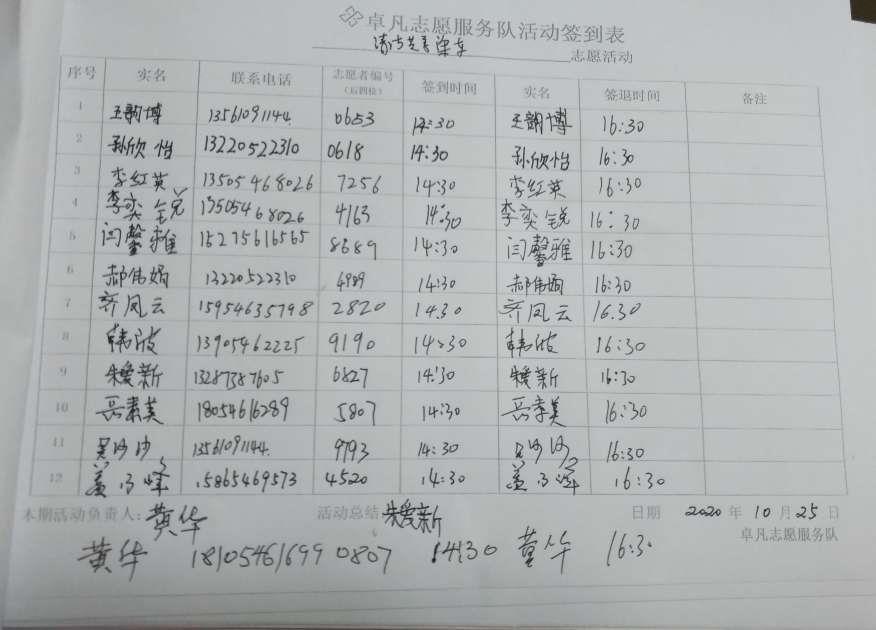 卓凡志愿服务队活动签到表
清洁共享单车 志愿活动
序号 实名 联系电话 志愿者编号（后四位） 签到时间 实名 签退时间 备注
1 王韵博 13561091144. 0653 14:30 王韵博 16:30
2 孙欣怡 13220522310 0618 14:30 孙欣怡 16:30
3 李红英 13505468026 7256 14:30 李红英 16:30
4 李奕锐 13505468026 4163 14:30 李奕锐 16:30
5 闫馨雅 15275616565 8689 14:30 闫馨雅 16:30
6 郝伟娟 13220522310 4989 14:30 郝伟娟 16:30
7 齐凤云 15954635798 2820 14.30 齐凤云 16.30
8 韩波 13905462225 9190 14:30 韩波 16:30
9 朱爱新 13287387605 6827 14:30 朱爱新 16:30
10 岳素美 18054616289 5807 14:30 岳素美 16:30
11 吴沙沙 13561091144. 9793 14:30 吴沙沙 16:30
12 .5865469573 4520 14:30 16:30
本期活动负责人: 黄华 活动总结 朱爱新 日期 2020 年 10 月 25 日
卓凡志愿服务队
黄华 18105461699 0807 14:30 黄华 16:30